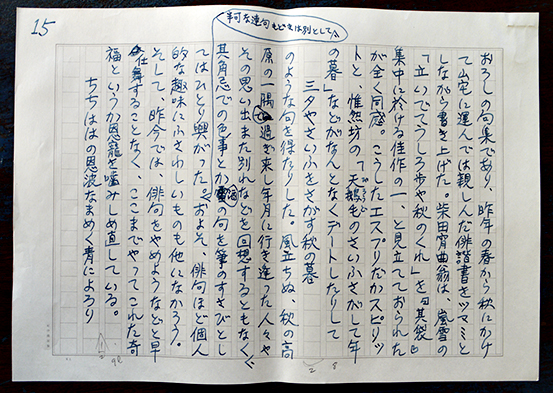 15
おろしの句集であり、昨年の春から秋にかけ
て山宅に運んでは親しんだ俳諧書をツマミと
しながら書き上げた。柴田宵曲翁は、嵐雪の
「立いでてうしろ歩や秋のくれ」を『其袋』
集中に於ける佳作の一、と見立てておられた
が全く同感。こうしたエスプリだかスピリッ
トと、惟然坊の「天鵝毛のさいふさがして年
の暮」などがなんとなくデートしたりして
三夕やさいふをさがす秋の暮
のような句を得たりした。風立ちぬ、秋の高
原の一隅に過ぎ来し年月に行き違った人々や
その思い出また別れなどを回想するともなく、
の句を筆のすさびとし
てはひとり興がった。およそ、俳句ほど個人
的な趣味にふさわしいものも他になかろう。
そして、昨今では、俳句をやめようなどと早
仕舞することなく、ここまでやってこれた奇
福というか恩寵を噛みしめ直している。
ちちははの恩波なまめく青によろり